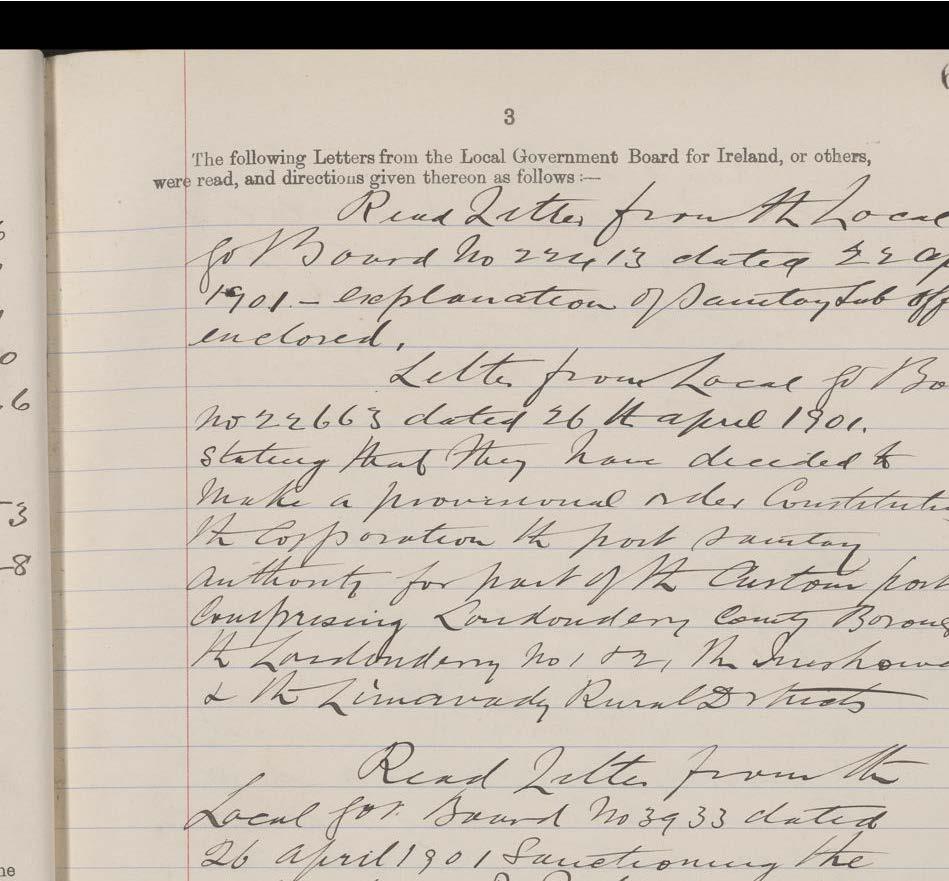 3
The following Letters from the Local Government Board for Ireland, or others,
were read, and directions given thereon as follows :—
Read Letter from the Local
Gov Board No 22413 dated 22 Ap
1901 – explanation of Sanitary Sub off
enclosed.
Letter from Local Gov Bo
No 22663 dated 26th april 1901.
stating that they have decided to
make a provisional order Constituti
the Corporation the port sanitary
authority for part of the Custom port
Comprising Londonderry County Boroug
the Londonderry No 1 & 2, the Inishowe
& the Limavady Rural Districts
Read Letter from the
Local Govt. Board No 3933 dated
26 April 1901 Sanctioning the
6
0
.6
3
-8
ne